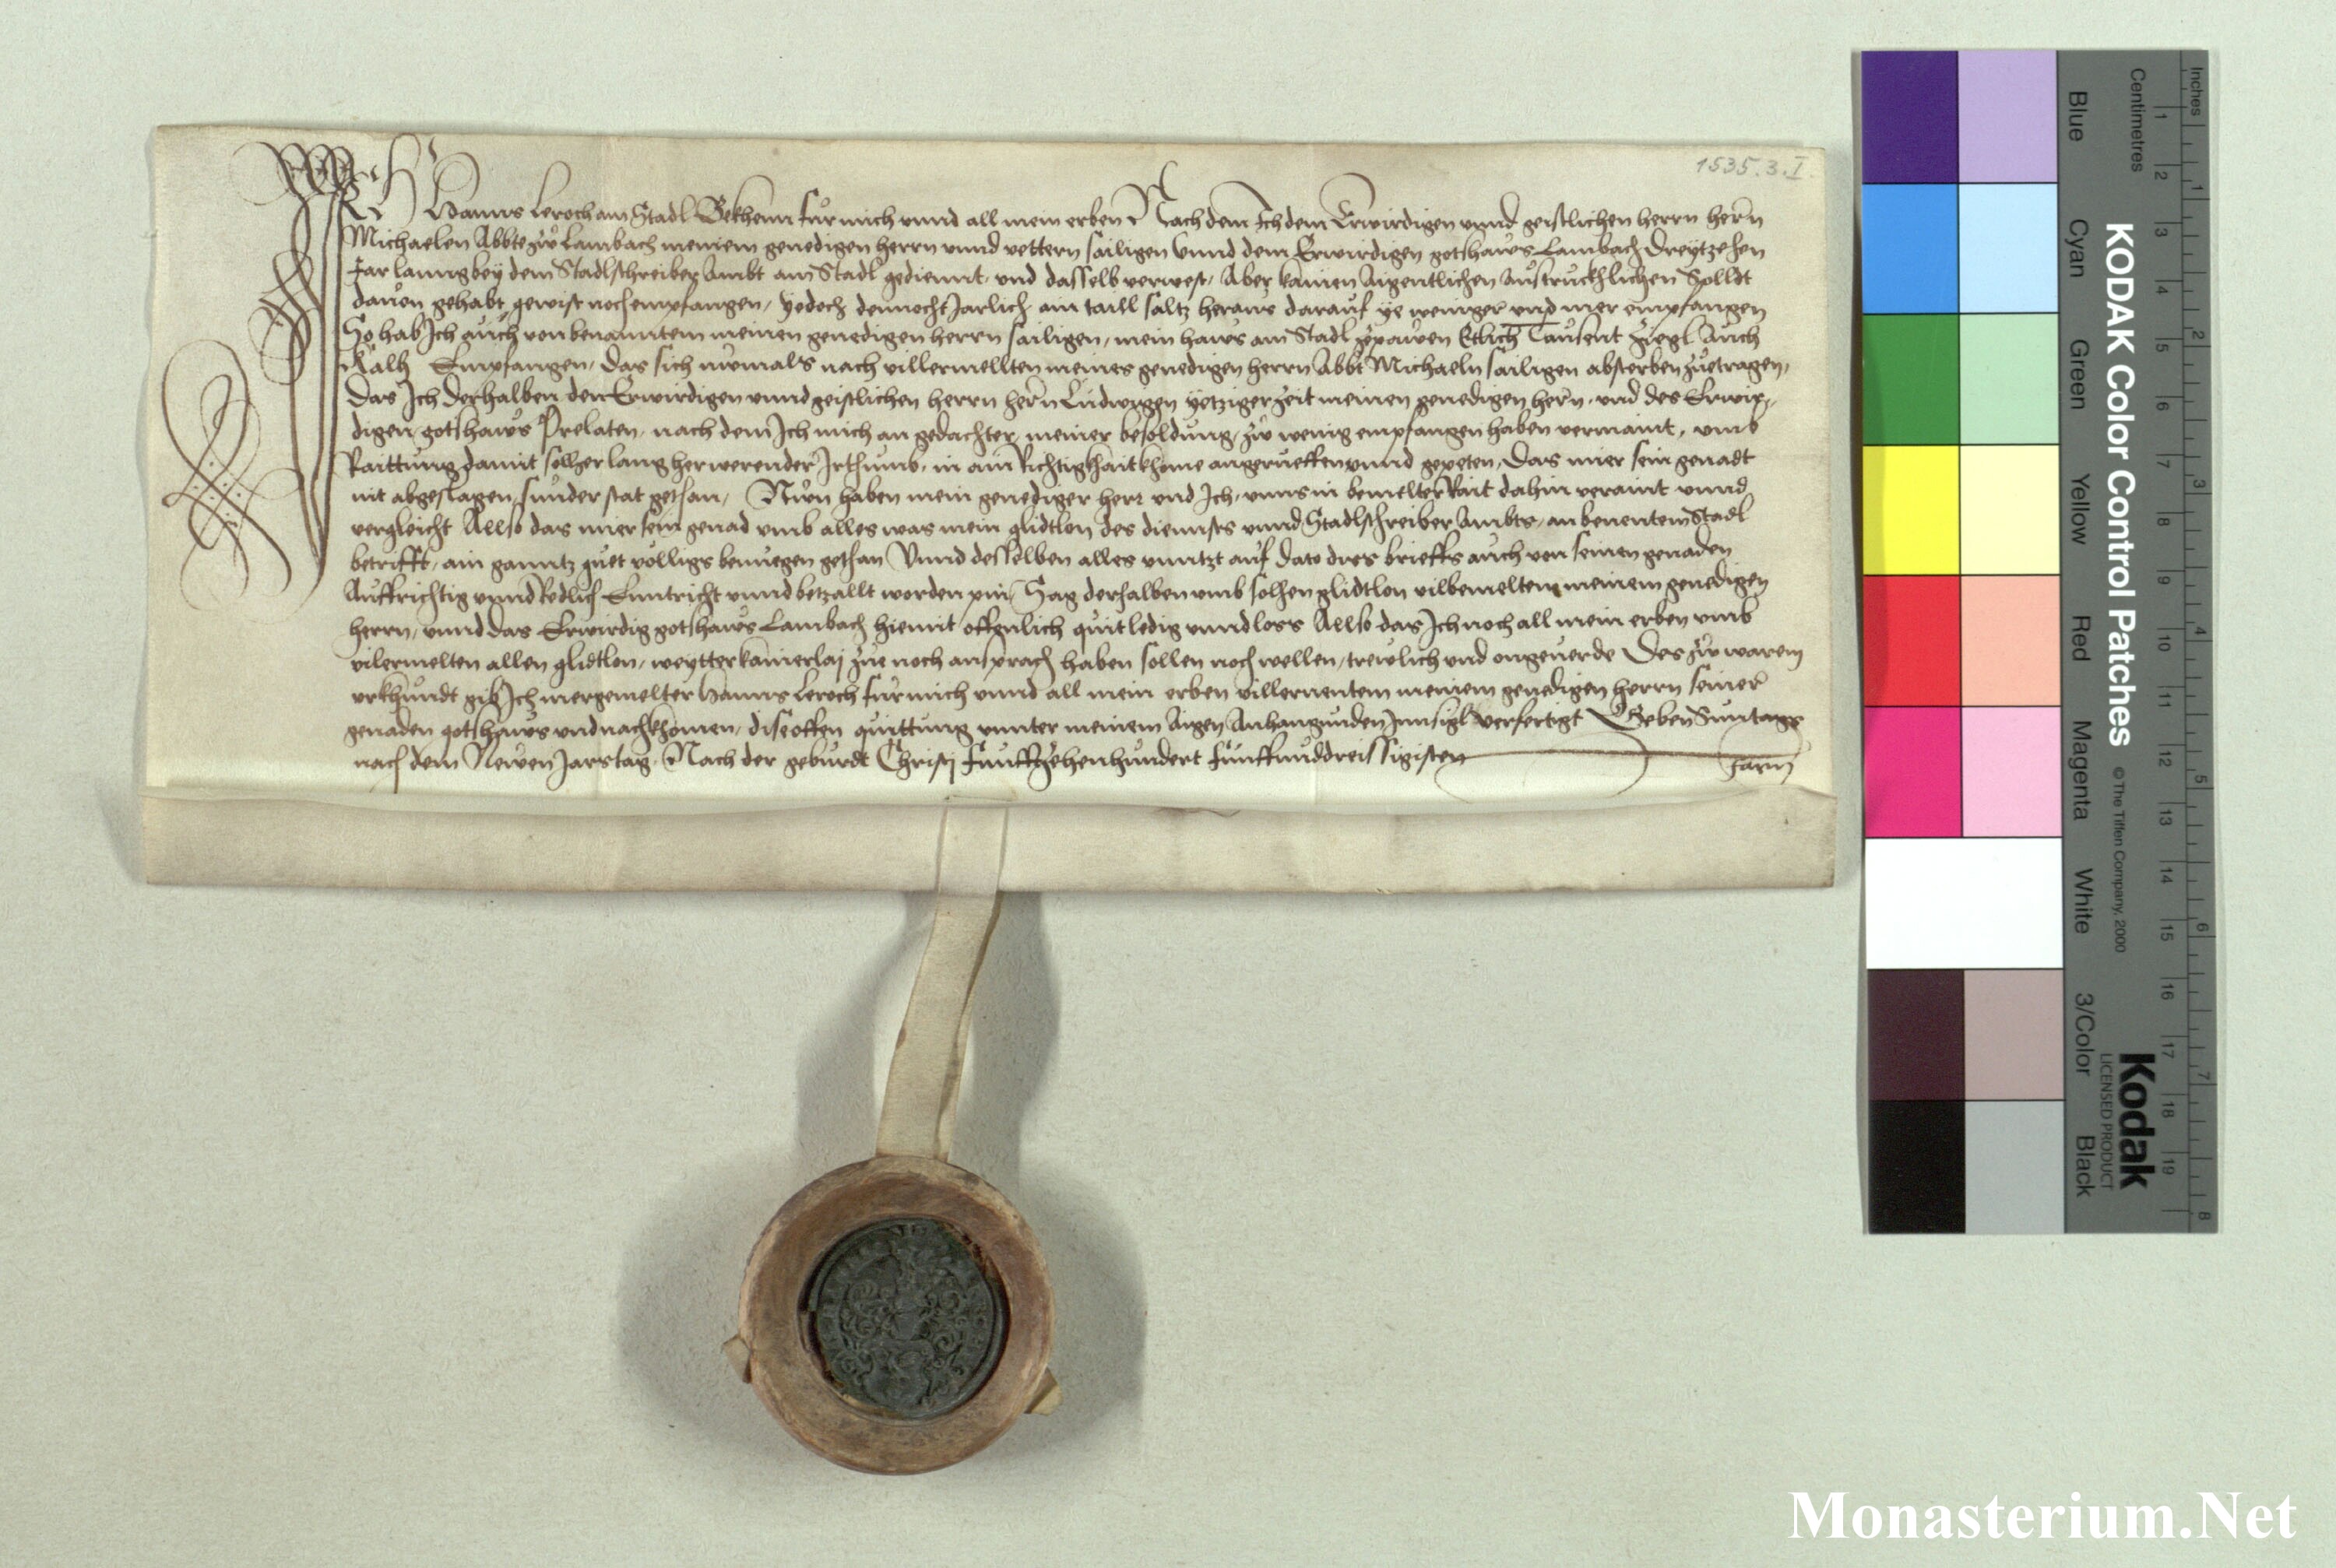 1535.3.I.
Ich Hanns Leroch am Stadl Bekhenn fur mich vnnd all mein erben Nach dem Ich dem Erwirdigen vnnd geistlichen herrn herrn
Michaelen Abbte zw Lambach meniem genedigen herrn vnnd vettern sailigen vnnd dem Erwirdigen gotshaws Lambach Dreytzehen
Jar lanng bey dem Stadlschreiber Ambt am Stadl gediennt, vnd dasselb verwest, Aber kainen Aigentlichen Austruckhlichen Solldt
dauon gehabt, gewist noch empfangen, yedoch dennocht Jarlich ain taill saltz heraus darauf ye weniger vnd mer empfangen
So hab Ich auch von benanntem meinen genedigen herrn sailigen, mein haws am Stadl zepawen Etlich Tausent Ziegl Auch
Kalh Empfangen, Das sich numals nach villermellten meines genedigen herrn Abbt Michaeln sailigen absterben zuetragen,
Das Ich derhalben den Erwirdigen vnnd geistlichen herrn herrn Ludwigen yetziger zeit meinen genedigen herrn, vnd des Erwir,
digen gotshaws Prelaten, nach dem Ich mich an gedachter meiner besoldung, zw wenig empfangen haben vermaint, vmb
Raittung damit sollher lang herwerender Irthumb, in ain Richtigkhait khome angerueffen vnnd gepeten, Das mier sein genadt
nit abgeslagen, sunder stat gethan, Nun haben mein genediger herr vnd Ich, vnns in bemelter Rait dahin veraint vnnd
vergleicht Allso das mier sein genad vmb alles was mein glidtlon des diennsts vnnd Stadlschreiber Ambts, an benentem Stadl
betrifft, ain ganntz guet volligs benuegen gethan Vnnd desselben alles vnntzt auf dato dits brieffs auch von seinen genaden
Auffrichtig vnnd Redlich Enntricht vnnd betzallt worden pin, Sag derhalben vmb solhen glidtlon vilbemeltem meinem genedigen
herrn, vnnd das Erwirdig gotshaws Lambach hiemit offenlich quit ledig vnnd loss Allso das Ich noch all mein erben vmb
vilermelten allen glidtlon, weytter kainerlaj zue noch ansprach haben sollen noch wellen, trewlich vnd ongeuerde Des zw warem
vrkhundt gib Ich mergemelter Hanns Leroch fur mich vnnd all mein erben villernentem meinem genedigen herrn seiner
genaden gotshaws vnd nachkhomen, dise offen quittung vnnter meinem Aigen Anhangunden Innsigl verfertigt Geben Suntags
nach dem Newen Jarstag, Nach der geburdt Christj Funffzehenhundert funffunddreissigisten Jarn
KODAK Color Control Patches
© The Tiffen Company, 2000
Kodak
LICENSED PRODUCT
Centimetres
Inches
Blue
Cyan
Green
Yellow
Red
Magenta
White
3/Color
Black
1 2 3 4 5 6 7 8 9 10 11 12 13 14 15 16 17 18 19
1 2 3 4 5 6 7 8
Monasterium.Net